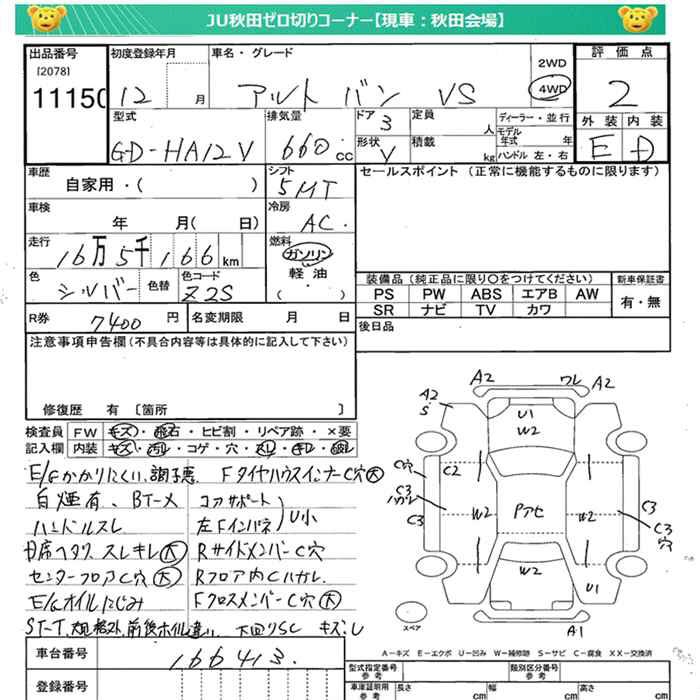 JU秋田ゼロ切りコーナー【現車：秋田会場】
出品番号
[2078]
11150
初度登録年月
12 月
車名・グレード
アルト バン VS
2WD
4WD
評価点
2
外装 内装
E D
型式
GD-HA12V
排気量
660 cc
ドア 3
形状 V
定員
人
積載
kg
ディーラー・並行
モデル年式 年
ハンドル 左・右
車歴
自家用・( )
シフト
5MT
セールスポイント (正常に機能するものに限ります)
車検
年 月( 日)
冷房
AC
走行
16万5千166km
燃料
ガソリン
軽油
( )
色
シルバー
色替
色コード
Z2S
装備品 (純正品に限り○をつけてください)
新車保証書
PS PW ABS エアB AW
SR ナビ TV カワ
有・無
R券 7400 円
名変期限 月 日
後日品
注意事項申告欄 (不具合内容等は具体的に記入して下さい)
修復歴 有 [箇所 ]
検査員 FW キズ・飛石・ヒビ割・リペア跡・×要
記入欄 内装 キズ・汚れ・コゲ・穴・スレ・キレ・破レ
E/Gかかりにくい、調子悪
FタイヤハウスインナーC穴(大)
白煙有、BT-メ
コアサポート
左Fインパネ
U小
ハンドルスレ
スレキレ(大)
RサイドメンバーC穴
センターフロアC穴(大)
Rフロア内Cハガレ
E/Gオイルにじみ
FクロスメンバーC穴(大)
前後ホイル違い 下回りSC キズ・U
A2 ワレ A2
A2
S
U1
W2
C穴
C2
C3
ハガレ
C3
W2
Pアセ
W2
C3
C3
穴
W2
U1
スペア
A1
A－キズ E－エクボ U－凹み W－補修跡 S－サビ C－腐食 XX－交換済
車台番号
166413
登録番号
型式指定番号
参考
類別区分番号
参考
車庫証明用
参考
長さ cm
幅 cm
高さ cm